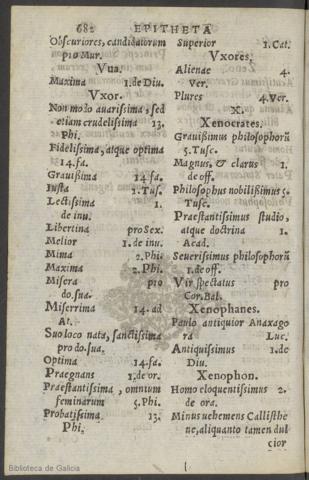 682 EPITHETA
Obscuriores, candidatorum
pro Mur.
Vua.
Maxima 1. de Diu.
Vxor.
Non modo auarissima, sed
etiam crudelissima 13.
Phi.
Fidelissima, atque optima
14. fa.
Grauißima 14. fa.
Iusta 2. Tus.
Lectissima 1.
de inu.
Libertina pro Sex.
Melior 1. de inu.
Mima 2. Phi.
Maxima 2. Phi.
Misera pro
do. sua.
Miserrima 14. ad
At.
Suo loco nata, sanctissima
pro do. sua.
Optima 14. fa.
Praegnans 1. de or.
Praestantissima, omnium
feminarum 5. Phi.
Probatissima 13.
Phi.
Superior 1. Cat.
Vxores.
Alienae 4.
Ver.
Plures 4. Ver.
X.
Xenocrates.
Grauißimus philosophorū
5. Tusc.
Magnus, & clarus 1.
de off.
Philosophus nobilißimus 5.
Tusc.
Praestantissimus studio,
atque doctrina 1.
Acad.
Seuerissimus philosophorū
1. de off.
Vir spectatus pro
Cor. Bal.
Xenophanes.
Paulo antiquior Anaxago
ra Luc.
Antiquißimus 1. de
Diu.
Xenophon.
Homo eloquentissimus 2.
de ora.
Minus uehemens Callisthe
ne, aliquanto tamen dul
cior
Biblioteca de Galicia